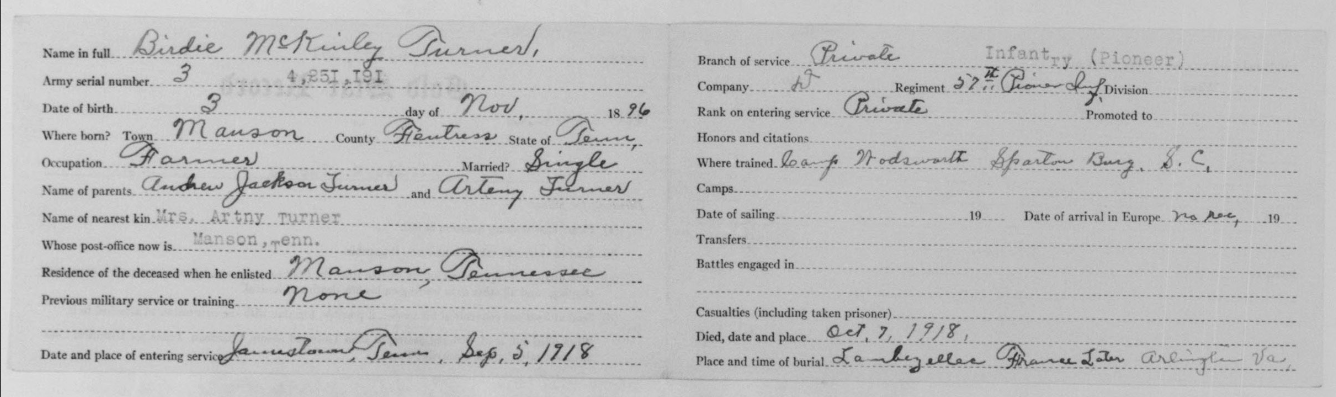 Name in full Birdie McKinley Turner,
Army serial number. 3 4,251,191
Date of birth 3 day of Nov, 1896
Where born? Town Manson County Fentress State of Tenn,
Occupation Farmer Married? Single
Name of parents Andrew Jackson Turner and Arteny Turner
Name of nearest kin Mrs. Artny Turner
Whose post-office now is Manson, Tenn.
Residence of the deceased when he enlisted Manson, Tennessee
Previous military service or training None
Date and place of entering service Jamestown, Tenn, Sep, 5, 1918
Branch of service Private Infantry (Pioneer)
Company Regiment 57th Pioneer Inf, Division
Rank on entering service Private Promoted to
Honors and citations
Where trained Camp Wodsworth Sparton Burg, S. C,
Camps
Date of sailing 19 Date of arrival in Europe no rec, 19
Transfers
Battles engaged in
Casualties (including taken prisoner)
Died, date and place Oct, 7, 1918,
Place and time of burial Lambezellec France Later Arlington Va,